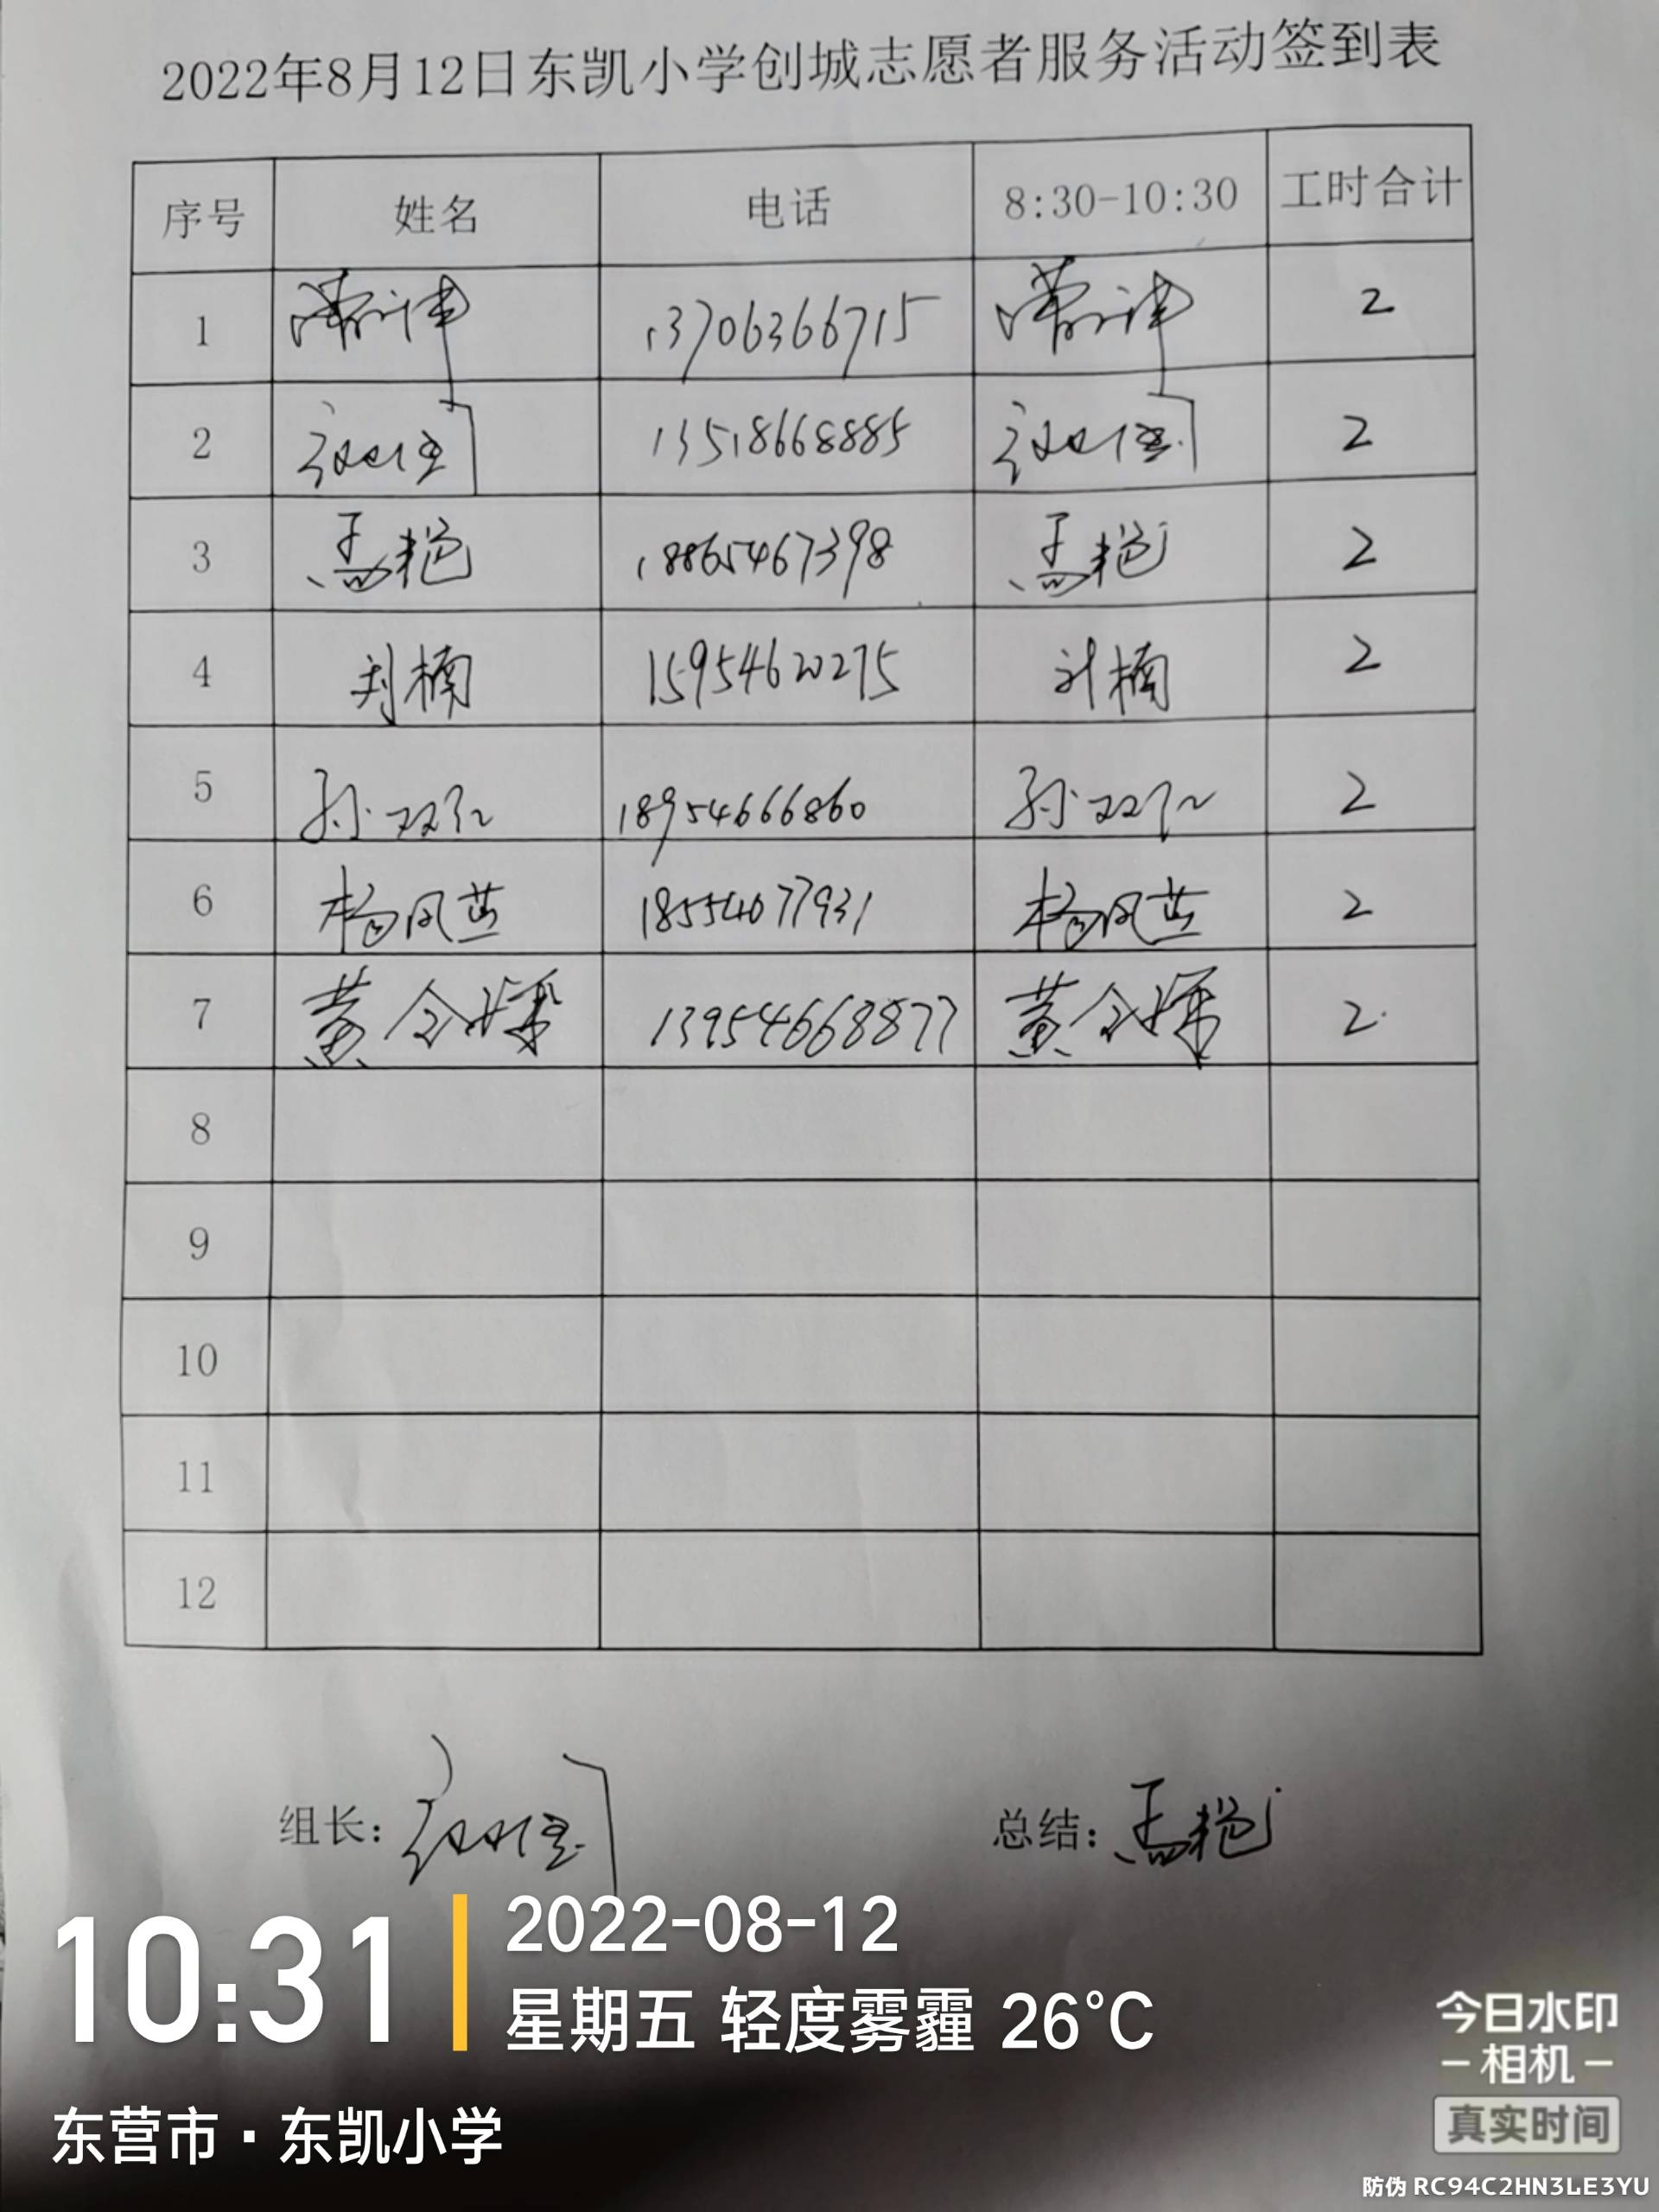 2022年8月12日东凯小学创城志愿者服务活动签到表
序号 姓名 电话 8:30-10:30 工时合计
1 13706366715 2
2 13518668885 2
3 孟艳 18865467398 孟艳 2
4 刘楠 15954620275 刘楠 2
5 孙双 18954666860 孙双 2
6 杨凤芝 18554077931 杨凤芝 2
7 黄令 13954668877 黄令 2
8
9
10
11
12
组长: 总结: 孟艳
10:31 2022-08-12
星期五 轻度雾霾 26°C
东营市·东凯小学
今日水印
-相机-
真实时间
防伪 RC94C2HN3LE3YU